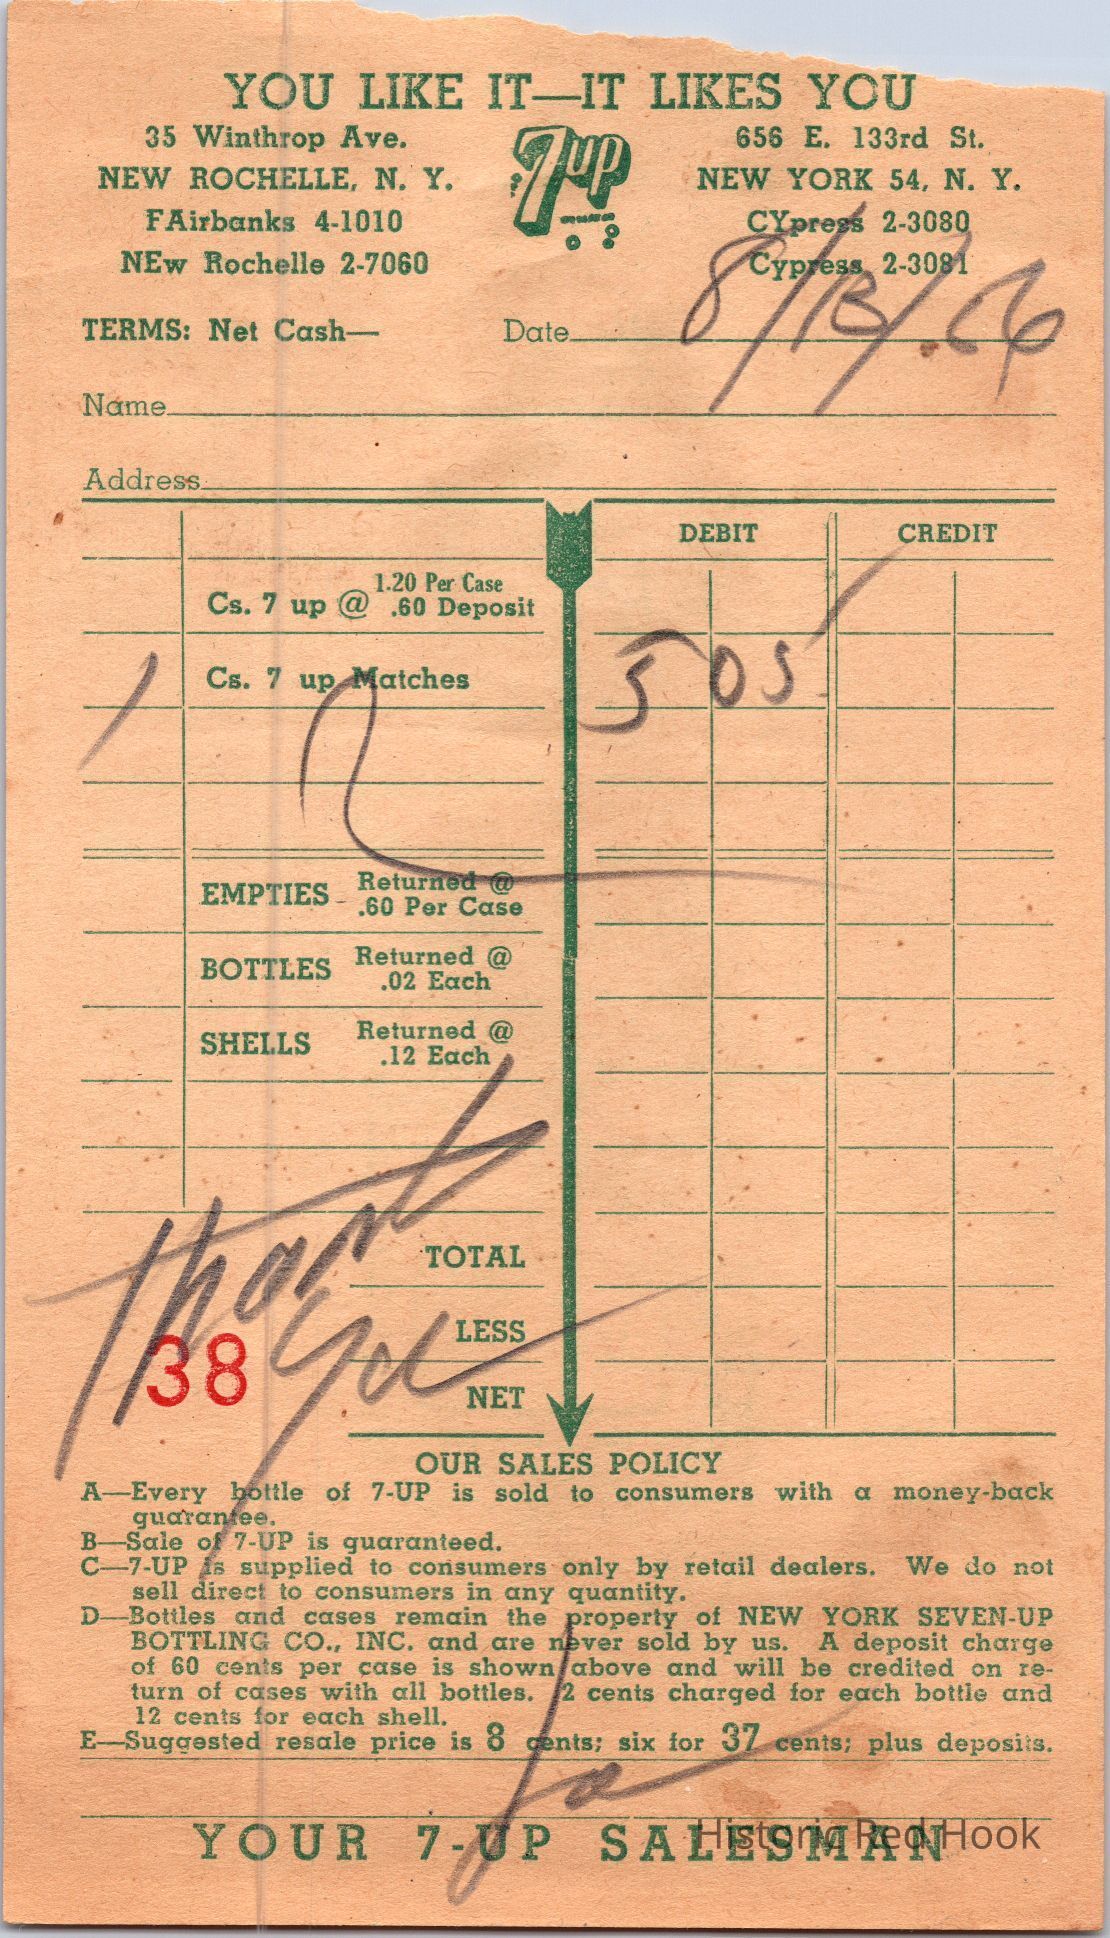 YOU LIKE IT—IT LIKES YOU
35 Winthrop Ave.
NEW ROCHELLE, N. Y.
FAirbanks 4-1010
NEw Rochelle 2-7060
7up
656 E. 133rd St.
NEW YORK 54, N. Y.
CYpress 2-3080
Cypress 2-3081
TERMS: Net Cash—
Date 8/13/66
Name
Address
DEBIT CREDIT
Cs. 7 up @ 1.20 Per Case
.60 Deposit
1 Cs. 7 up Matches 5 05
EMPTIES - Returned @
.60 Per Case
BOTTLES Returned @
.02 Each
SHELLS Returned @
.12 Each
Thank
TOTAL
LESS
38
NET
OUR SALES POLICY
A—Every bottle of 7-UP is sold to consumers with a money-back
guarantee.
B—Sale of 7-UP is guaranteed.
C—7-UP is supplied to consumers only by retail dealers. We do not
sell direct to consumers in any quantity.
D—Bottles and cases remain the property of NEW YORK SEVEN-UP
BOTTLING CO., INC. and are never sold by us. A deposit charge
of 60 cents per case is shown above and will be credited on re-
turn of cases with all bottles. 2 cents charged for each bottle and
12 cents for each shell.
E—Suggested resale price is 8 cents; six for 37 cents; plus deposits.
YOUR 7-UP SALESMAN
Historic Red Hook